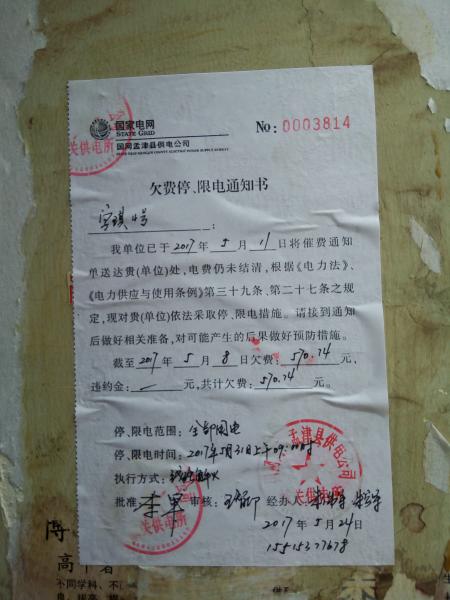 国家电网
STATE GRID
国网孟津县供电公司
No: 0003814
关供电所
欠费停、限电通知书
4号:
我单位已于2017年5月11日将催费通知
单送达贵(单位)处,电费仍未结清,根据《电力法》、
《电力供应与使用条例》第三十九条、第二十七条之规
定,现对贵(单位)依法采取停、限电措施。请接到通知
后做好相关准备,对可能产生的后果做好预防措施。
截至2017年5月8日欠费:570.74元,
违约金:—元,共计欠费:570.74元。
停、限电范围:全部用电
孟津县供电公司
停、限电时间:2017年5月31日上午09:00时
执行方式:
关供电所
批准: 审核: 经办人:
关供电所
2017年5月24日
15515377678
高
不同学科、不